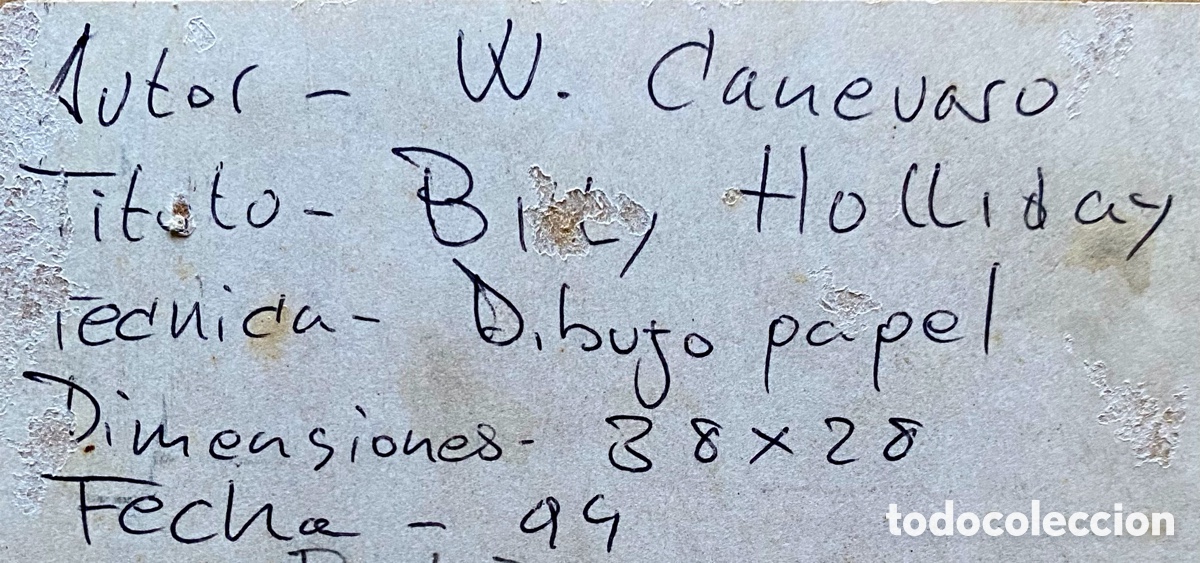 Autor - W. Canevaro
Titulo - Billy Holliday
Tecnica - Dibujo papel
Dimensiones - 38x28
Fecha - 94
todocoleccion